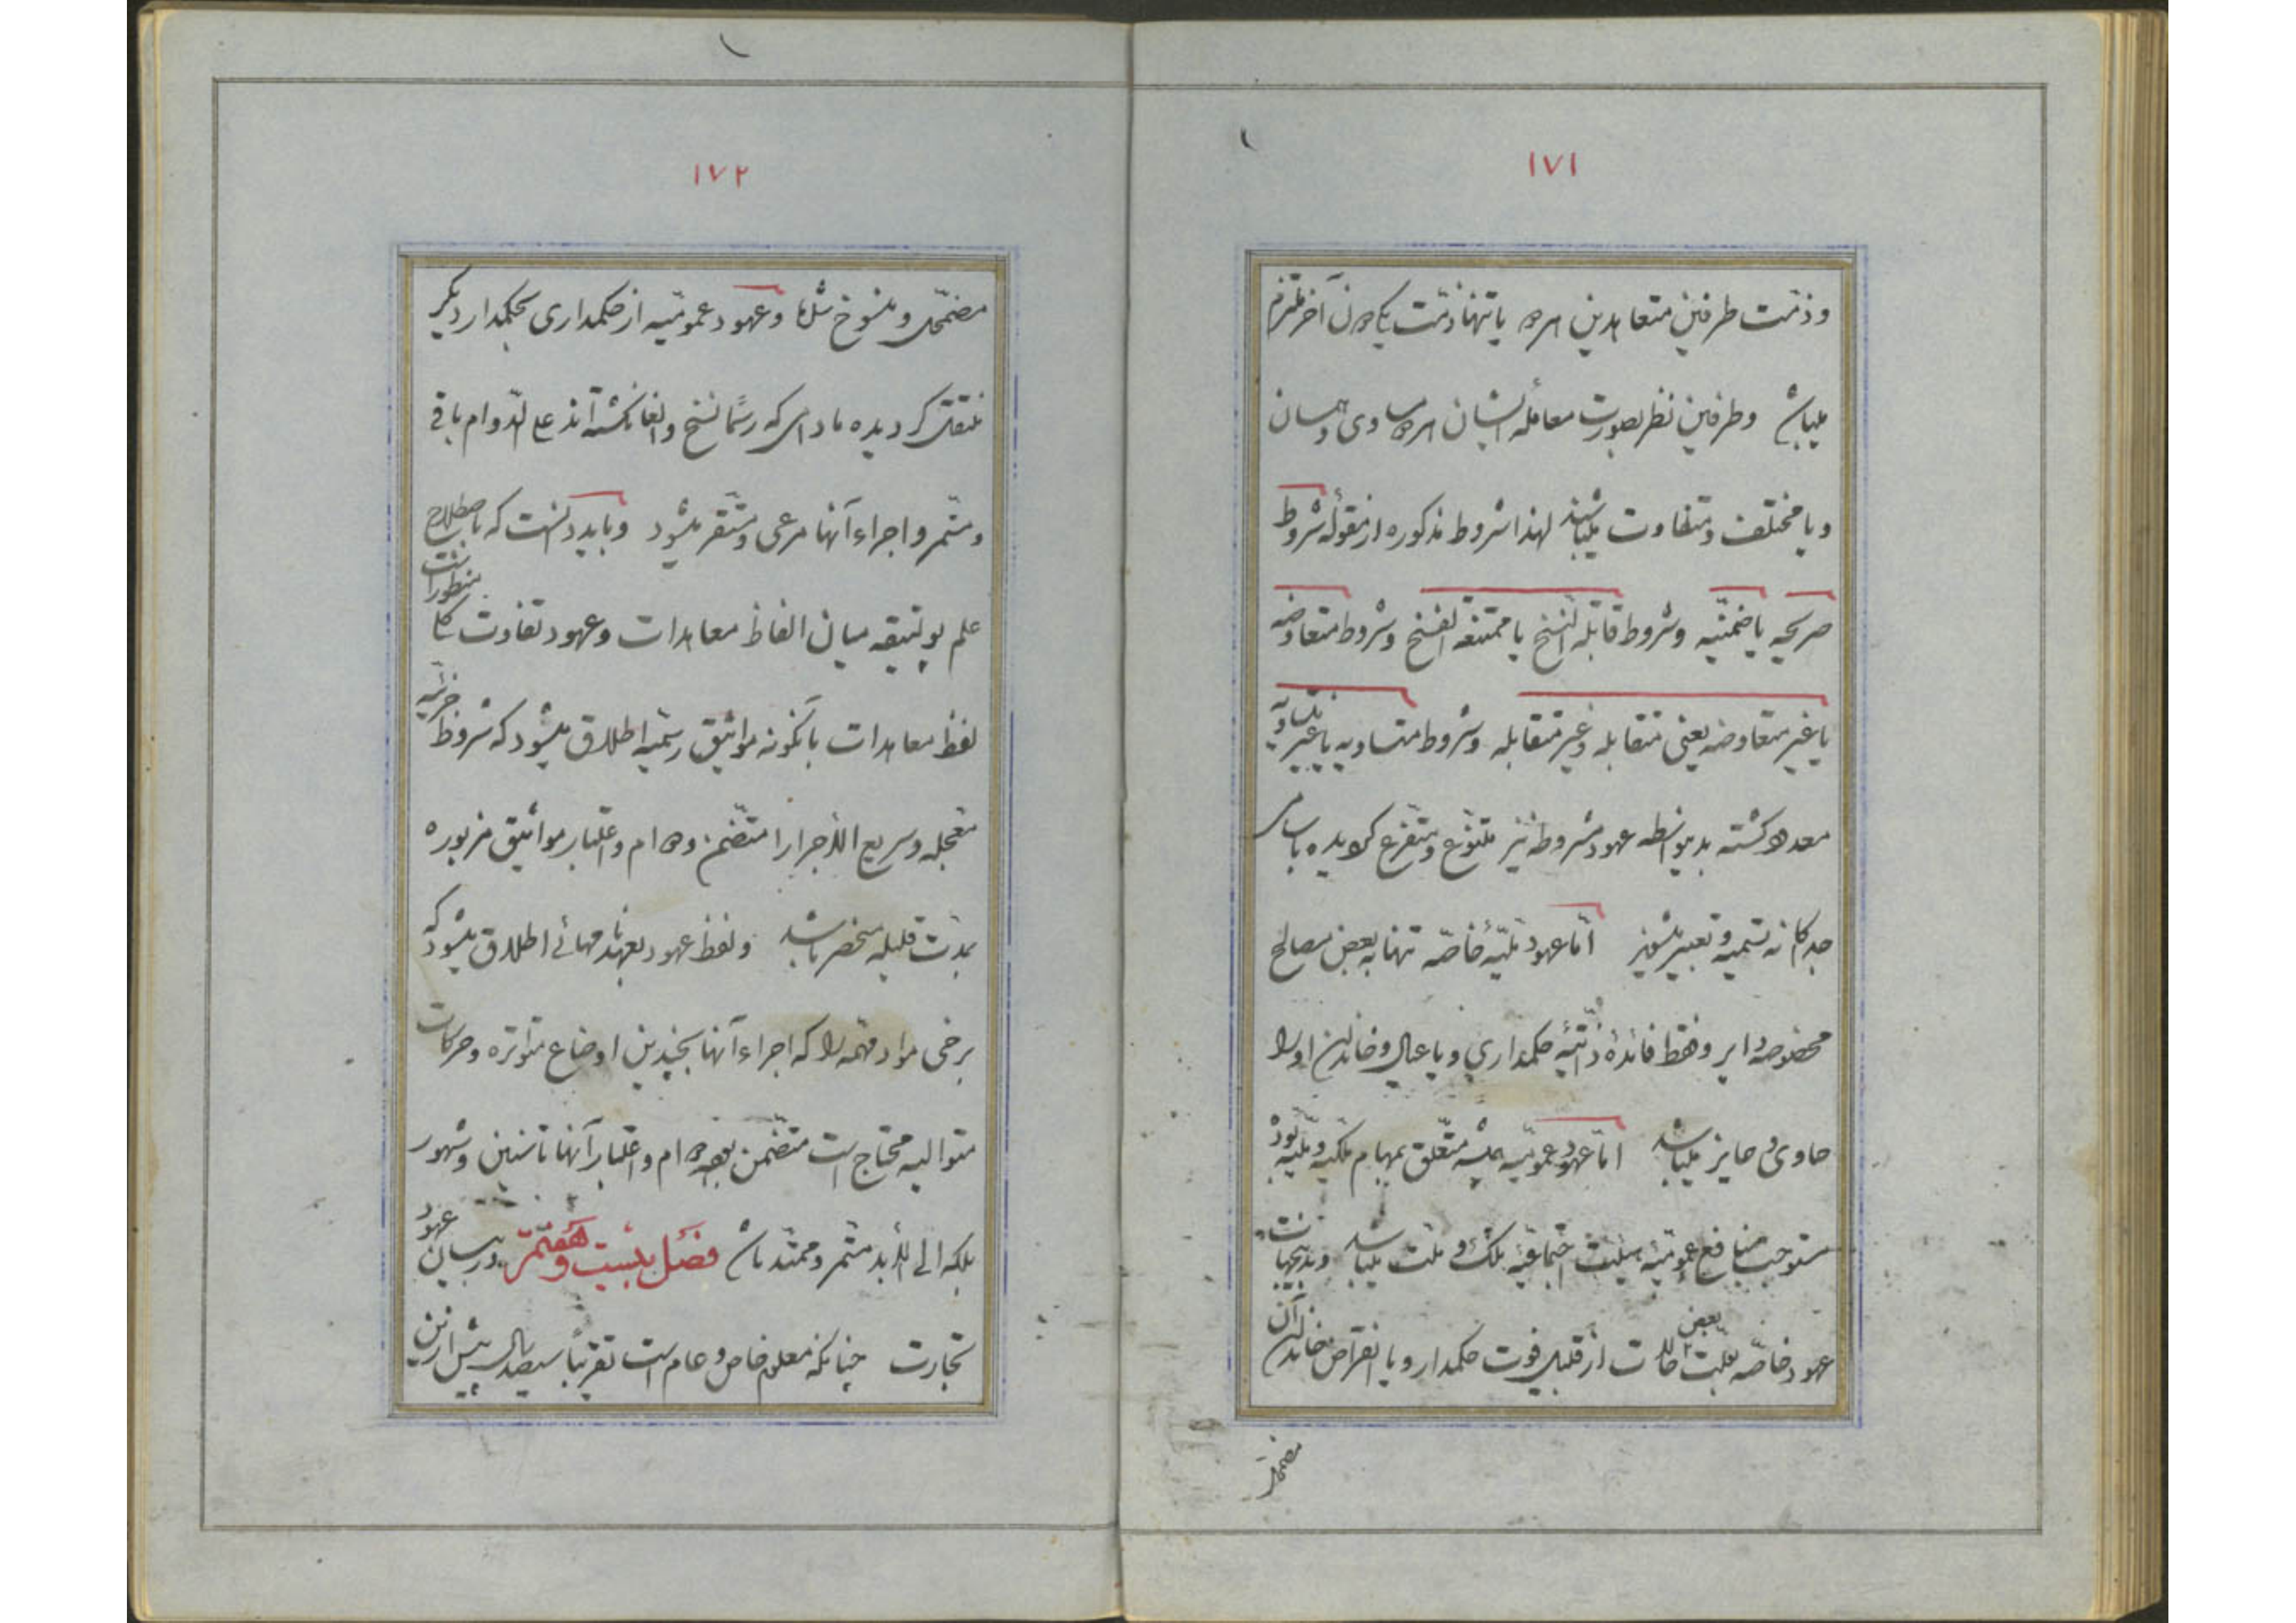 ۱۷۱
و ذمت طرفین متعاهدین را و یا تنها ذمت یکی از آن آخر ملتزم
میباشد و طرفین نظر بصورت معامله ایشان را مساوی و یکسان
و یا مختلف و متفاوت میباشند لهذا شروط مذکوره از مقوله شروط
صریحیه یا ضمنیه و شروط قابلة الفسخ یا ممتنعة الفسخ و شروط متعاوضه
یا غیر متعاوضه یعنی متقابله و غیر متقابله و شروط متساویه یا غیر متساویه
معدود گشته بدینواسطه عهود مشروطه نیز متنوع و متفرع گردیده باسامی
جداگانه تسمیه و تعبیر میشوند اما عهود ملیّهٔ خاصّه تنها به بعض مصالح
مخصوصه دایر و فقط فائدهٔ ذاتیّهٔ حکمداری و یا عیال و خاندان او را
حاوی و حایز میباشد امّا عهود عمومیّه متعلق بمهام ملکیه و ملیّه بوده
مستوجب منافع عمومیّه هیئت اجتماعیّه ملک و ملت میباشد و بدینجهت
عهود خاصّه بعلّت بعض حالات از قبیل فوت حکمدار و یا انقراض خاندان آن
مضمحل
۱۷۲
مضمحل و منسوخ شده و عهود عمومیّه از حکمداری بحکمدار دیگر
منتقل گردیده مادامی که رسمًا نسخ و الغا نگشته‌اند علی الدّوام باقی
و مستمر و اجراء آنها مرعی و مستقر میشود و باید دانست که باصطلاح
علم پولیتیقه میان الفاظ معاهدات و عهود تفاوت کلی منظور است
لفظ معاهدات بآنگونه مواثیق رسمیه اطلاق میشود که شروط جزئیه
معجله و سریع الاجرا را متضمن و دوام و اعتبار مواثیق مزبوره
بمدّت قلیله منحصر باشد و لفظ عهود بعهدنامهائی اطلاق میشود که
برخی مواد مهمّه را که اجراء آنها بچندین اوضاع متواتره و حرکات
متوالیه محتاج است متضمن بوده دوام و اعتبار آنها تا سنین و شهور
بلکه الی الأبد مستمر و ممتد باشد فصل بیست و هفتم در بیان عهود
تجارت چنانکه معلوم خاص و عام است تقریبًا سیصد سال پیش ازین